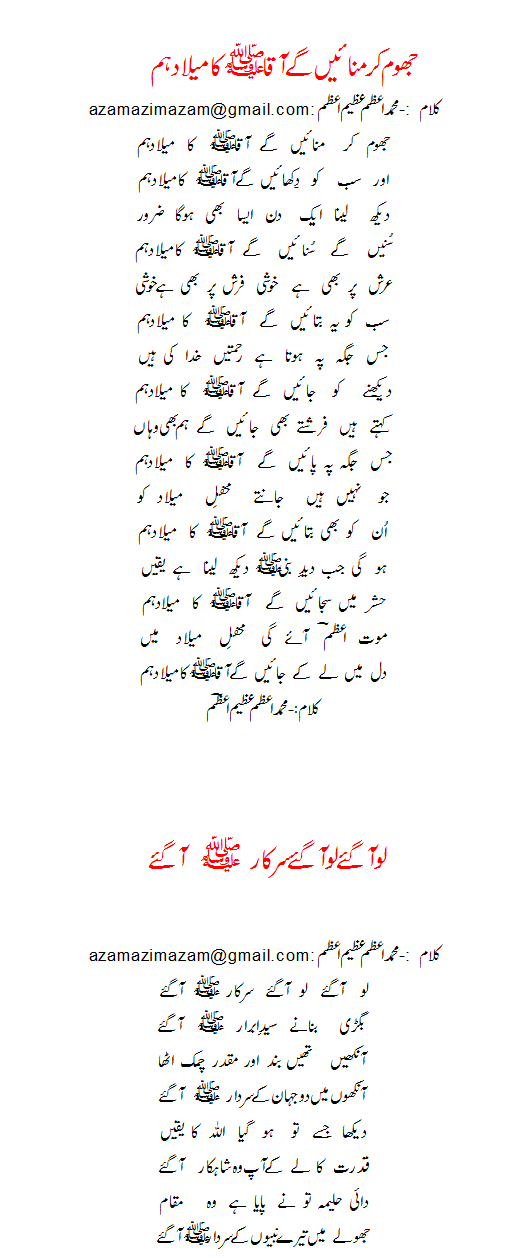 جھوم کر منائیں گے آقا ﷺ کا میلاد ہم
کلام :- محمد اعظم عظیم اعظم :azamazimazam@gmail.com
جھوم کر منائیں گے آقا ﷺ کا میلاد ہم
اور سب کو دِکھائیں گے آقا ﷺ کا میلاد ہم
دیکھ لینا ایک دن ایسا بھی ہوگا ضرور
سُنیں گے سُنائیں گے آقا ﷺ کا میلاد ہم
عرش پر بھی ہے خوشی فرش پر بھی ہے خوشی
سب کو یہ بتائیں گے آقا ﷺ کا میلاد ہم
جس جگہ پہ ہوتا ہے رحمتیں خدا کی ہیں
دیکھنے کو جائیں گے آقا ﷺ کا میلاد ہم
کہتے ہیں فرشتے بھی جائیں گے ہم بھی وہاں
جس جگہ پہ پائیں گے آقا ﷺ کا میلاد ہم
جو نہیں ہیں جانتے محفلِ میلاد کو
اُن کو بھی بتائیں گے آقا ﷺ کا میلاد ہم
ہو گی جب دیدِ نبی ﷺ دیکھ لینا ہے یقیں
حشر میں سجائیں گے آقا ﷺ کا میلاد ہم
موت اعظمؔ آئے گی محفلِ میلاد میں
دل میں لے کے جائیں گے آقا ﷺ کا میلاد ہم
کلام :- محمد اعظم عظیم اعظمؔ
لو آ گئے لو آ گئے سرکار ﷺ آ گئے
کلام :- محمد اعظم عظیم اعظم :azamazimazam@gmail.com
لو آ گئے لو آ گئے سرکار ﷺ آ گئے
بگڑی بنانے سیدِ ابرار ﷺ آ گئے
آنکھیں تھیں بند اور مقدر چمک اٹھا
آنکھوں میں دو جہان کے سردار ﷺ آ گئے
دیکھا جسے تو ہو گیا اللہ کا یقیں
قدرت کا لے کے آپ وہ شاہکار آ گئے
دائی حلیمہ تو نے پایا ہے وہ مقام
جھولے میں تیرے نبیوں کے سردار ﷺ آ گئے